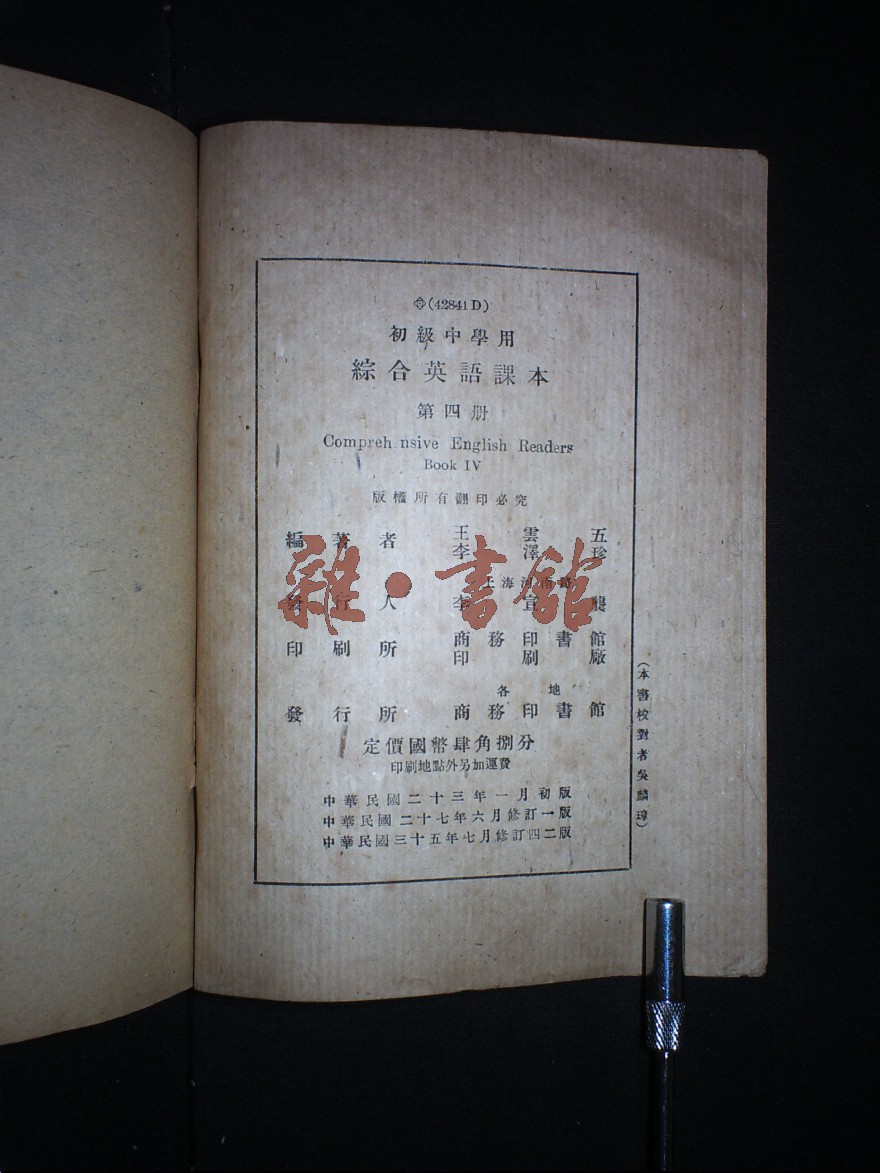 (42841 D)
初級中學用
綜合英語課本
第四册
Compreh nsive English Readers
Book IV
版權所有翻印必究
編著者 王雲五
李澤珍
上海河南路
發行人 李宣龔
印刷所 商務印書館
印刷廠
各地
發行所 商務印書館
定價國幣肆角捌分
印刷地點外另加運費
中華民國二十三年一月初版
中華民國二十七年六月修訂一版
中華民國三十五年七月修訂四二版
(本書校對者吳麟瑋)
雜·書館